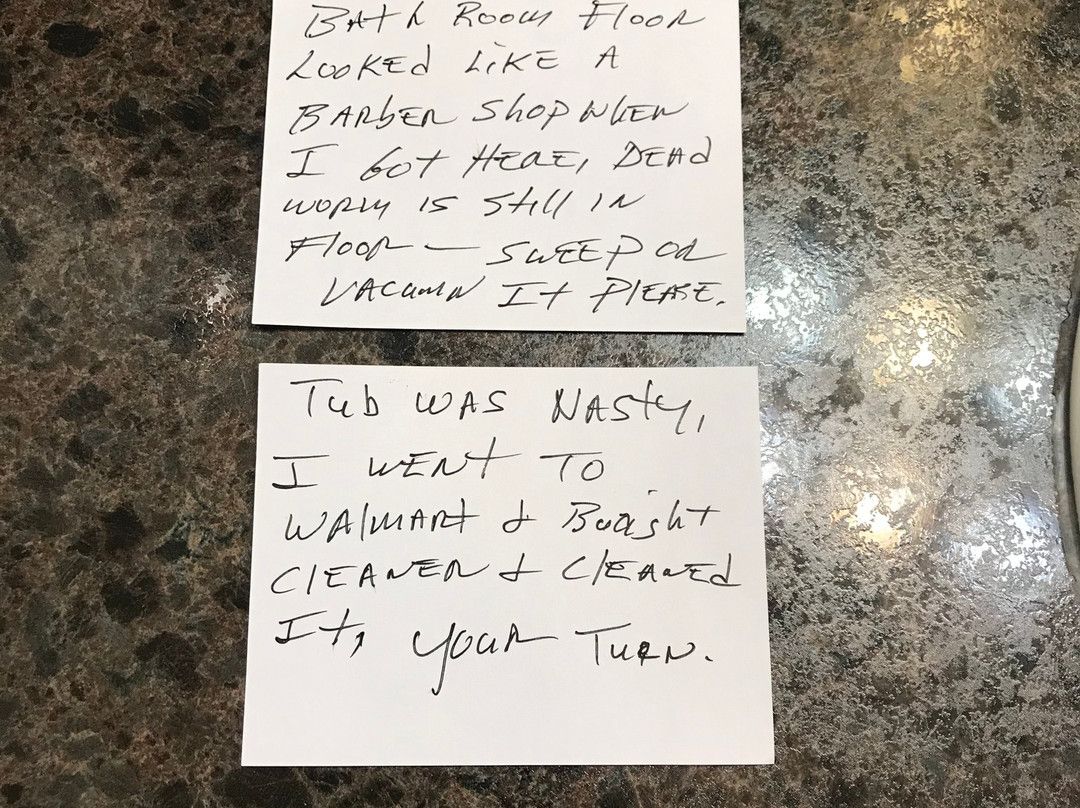 BATh Room Floor
Looked Like A
BARber Shop when
I Got Here, Dead
worm is still in
Floor — Sweep or
Vacumn It Please.
Tub was Nasty,
I went To
Walmart & Bought
Cleaner & Cleaned
It, Your Turn.